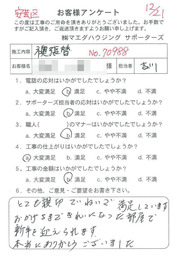 安芸区 お客様アンケート 12/21
この度は工事のご用命を頂きありがとうございました。お手数
ですがご記入頂き、ご返送頂きますようお願い申し上げます。
㈱マエダハウジング サポーターズ
施工内容 襖張替 No.70988
お名前 様 担当者
1. 電話の応対はいかがでしたでしょうか?
a. 大変満足 b. 満足 c. やや不満 d. 不満
2. サポーターズ担当者の応対はいかがでしたでしょうか?
a. 大変満足 b. 満足 c. やや不満 d. 不満
3. 職人( )のマナーはいかがでしたでしょうか?
a. 大変満足 b. 満足 c. やや不満 d. 不満
4. 工事の仕上がりはいかがでしたでしょうか?
a. 大変満足 b. 満足 c. やや不満 d. 不満
5. 工事の金額はいかがでしたでしょうか?
a. 大変満足 b. 満足 c. やや不満 d. 不満
6. その他、ご意見・ご要望をお書き下さい。
とても親切でていねいで満足しています
おかげさまできれいになった部屋で
新年を迎えられます
本当にありがとうございました